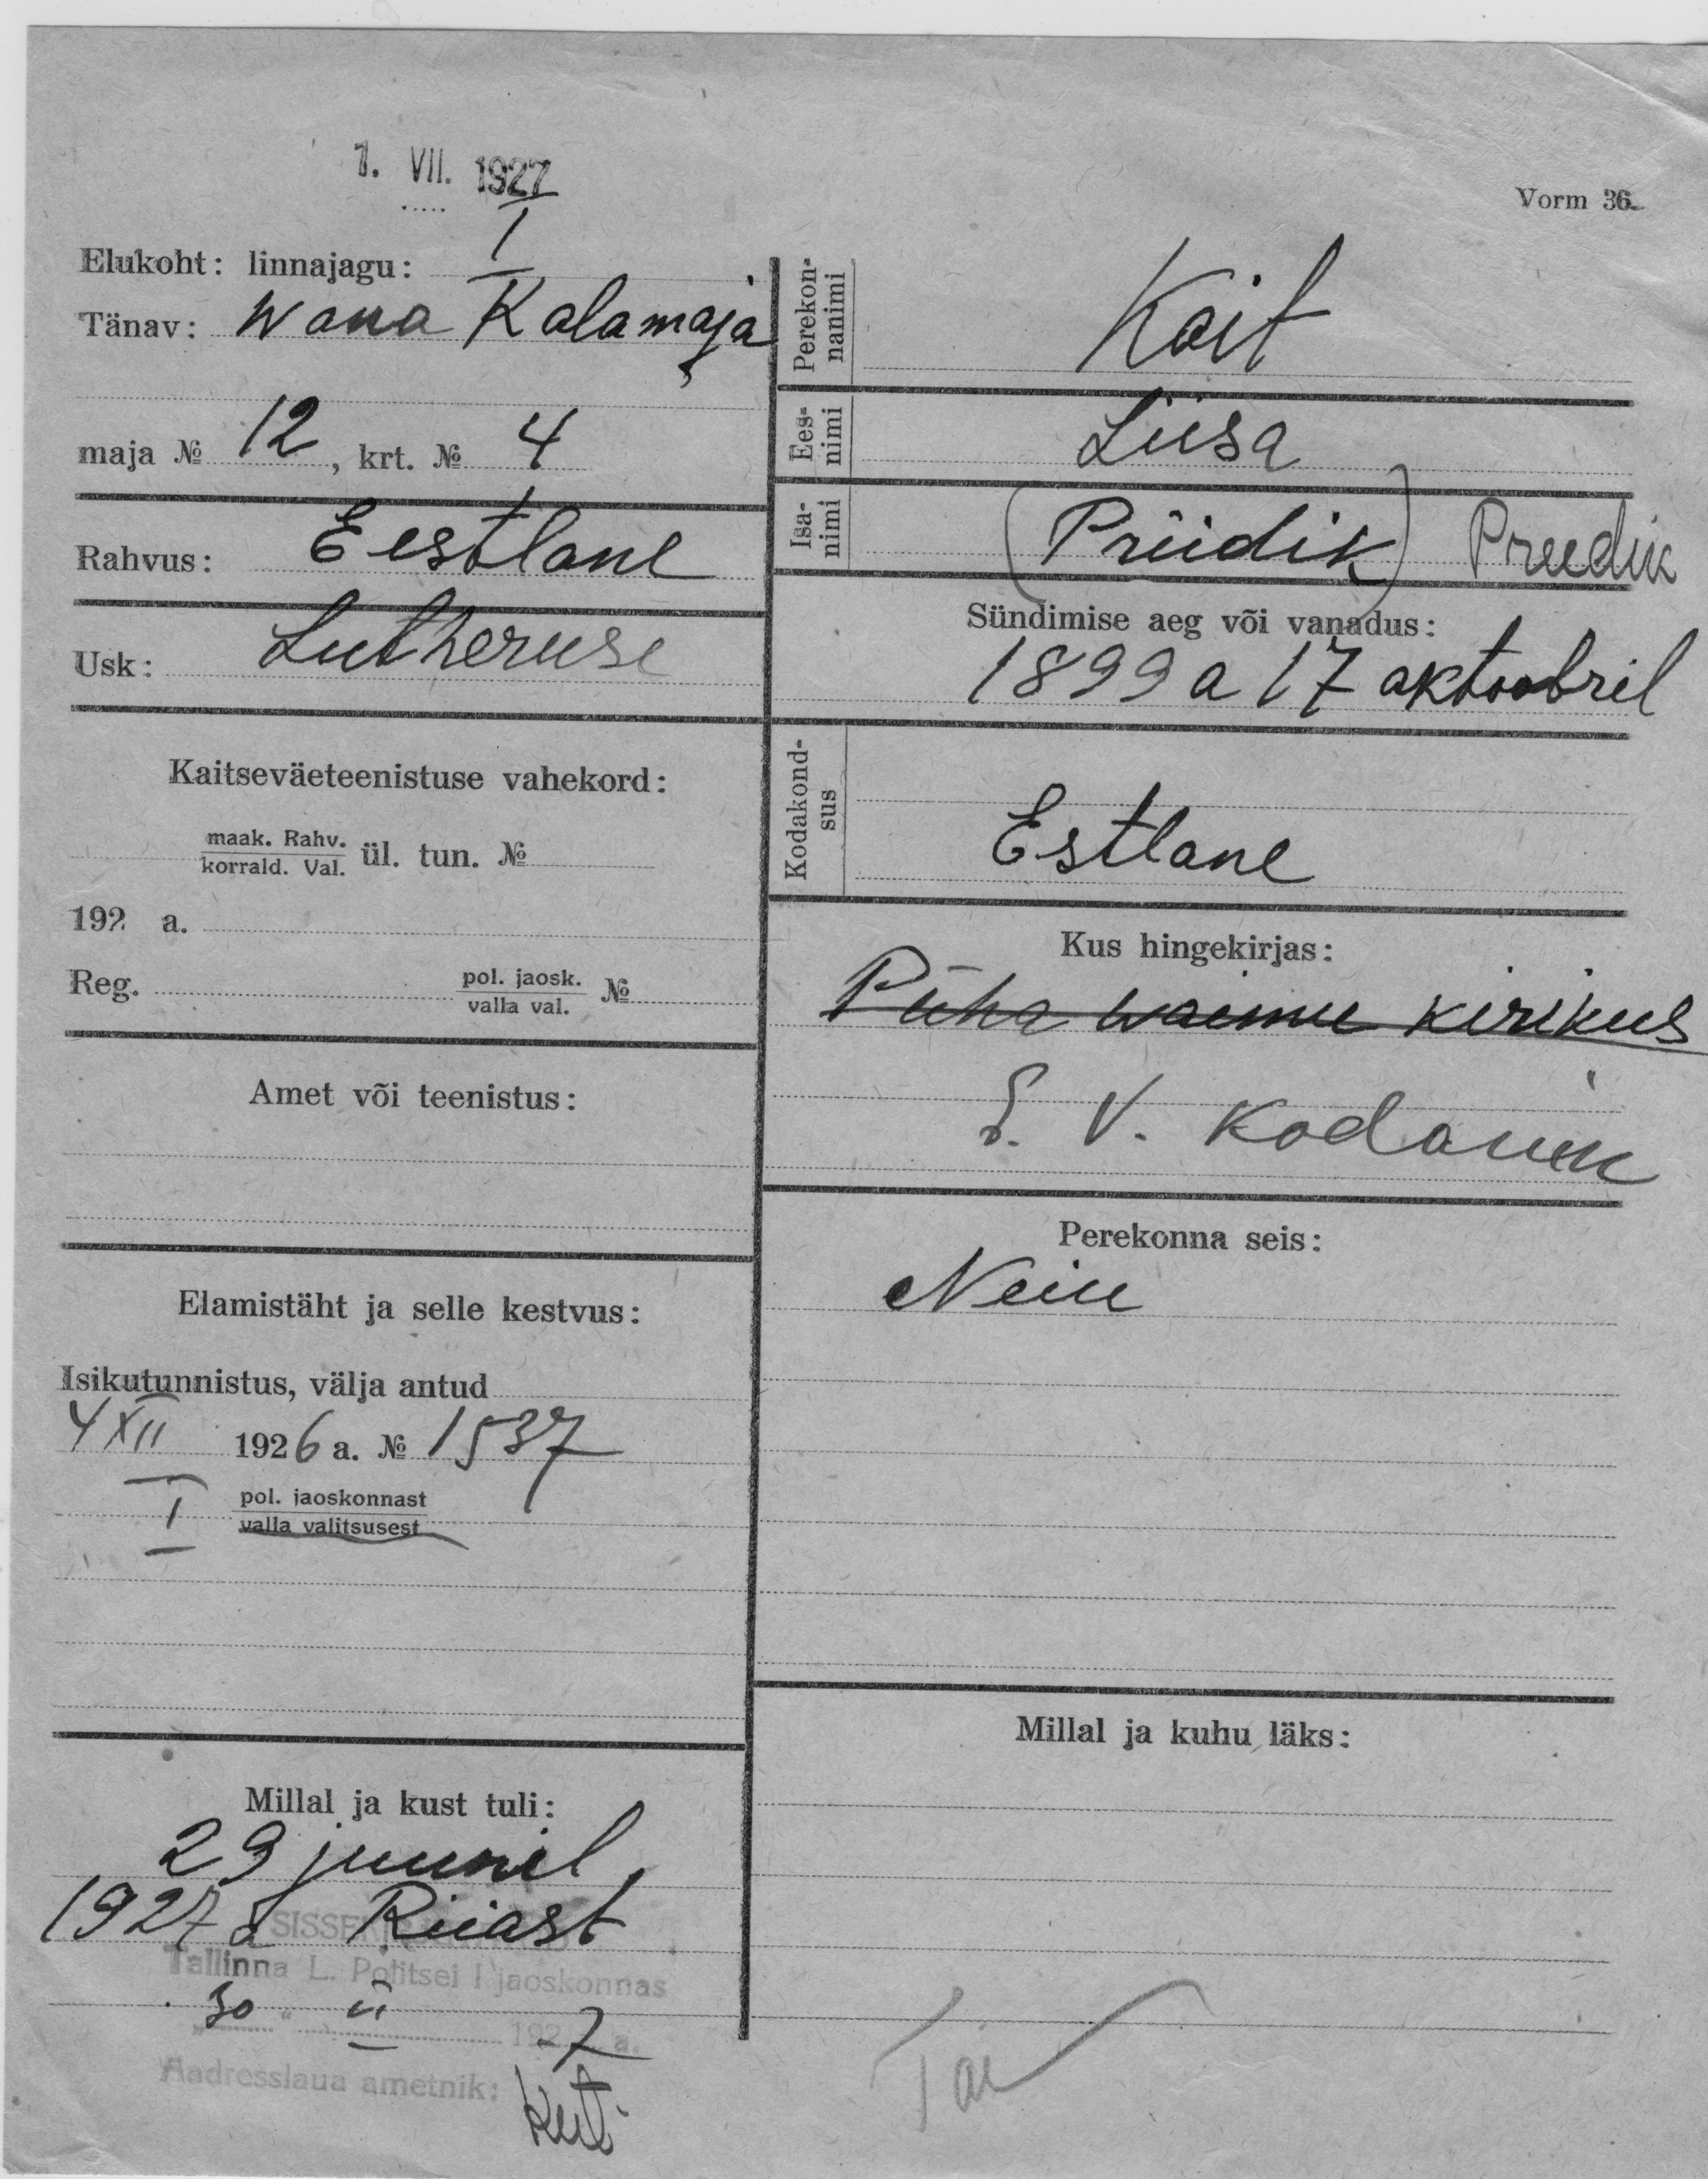 1. VII. 1927
Vorm 36.
Elukoht: linnajagu: I
Tänav: Wana Kalamaja
maja № 12, krt. № 4
Rahvus: Eestlane
Usk: Lutheruse
Kaitseväeteenistuse vahekord:
maak. Rahv.
korrald. Val. ül. tun. №
192 a.
Reg. pol. jaosk.
valla val. №
Amet või teenistus:
Elamistäht ja selle kestvus:
Isikutunnistus, välja antud
4 XII 1926 a. № 1537
I pol. jaoskonnast
valla valitsusest
Millal ja kust tuli:
29 juunil
1927 Riiast
Tallinna L. Politsei I jaoskonnas
30 192 7 a.
Aadresslaua ametnik:
Perekonnanimi
Koit
Eesnimi
Liisa
Isanimi
(Priidik) Priidik
Sündimise aeg või vanadus:
1899 a 17 aktoobril
Kodakondsus
Estlane
Kus hingekirjas:
Püha waimu kirikus
E. V. Kodanik
Perekonna seis:
Neiu
Millal ja kuhu läks: